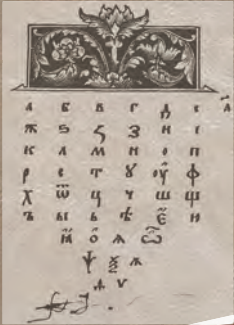 а б в г д є
ж ѕ ꙁ з и і
к л м н о п
р с т ꙋ оу ф
х ѿ ц ч ш щ
ъ ы ь ѣ
ѱ ѯ
ѵ